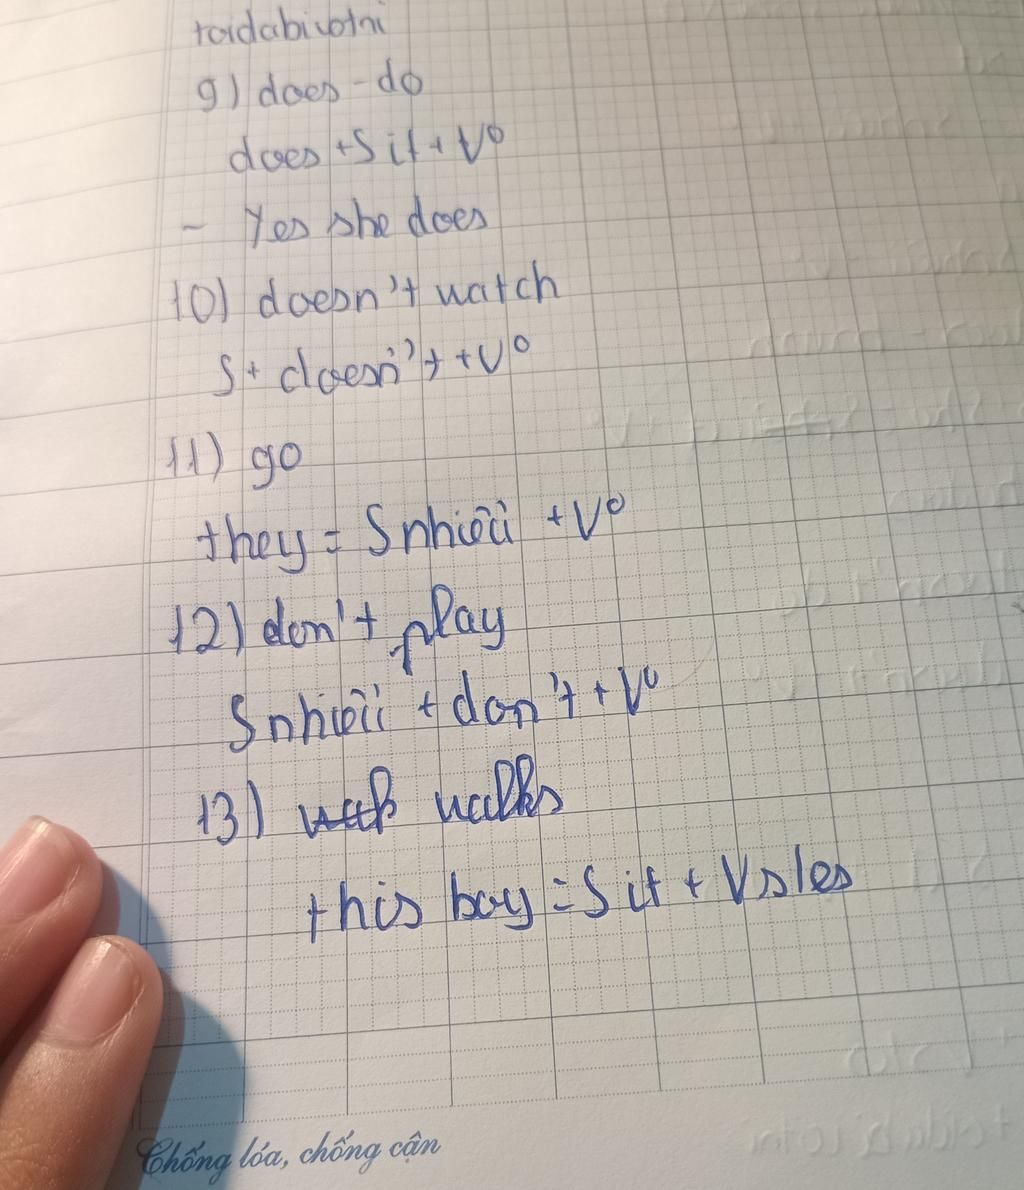 toidabivotni
9) does - do
does + S ít + V⁰
- Yes she does
10) doesn't watch
S + doesn't + V⁰
11) go
they = S nhiều + V⁰
12) don't play
S nhiều + don't + V⁰
13) walks
this boy = S ít + Vs/es
Chống lóa, chống cận